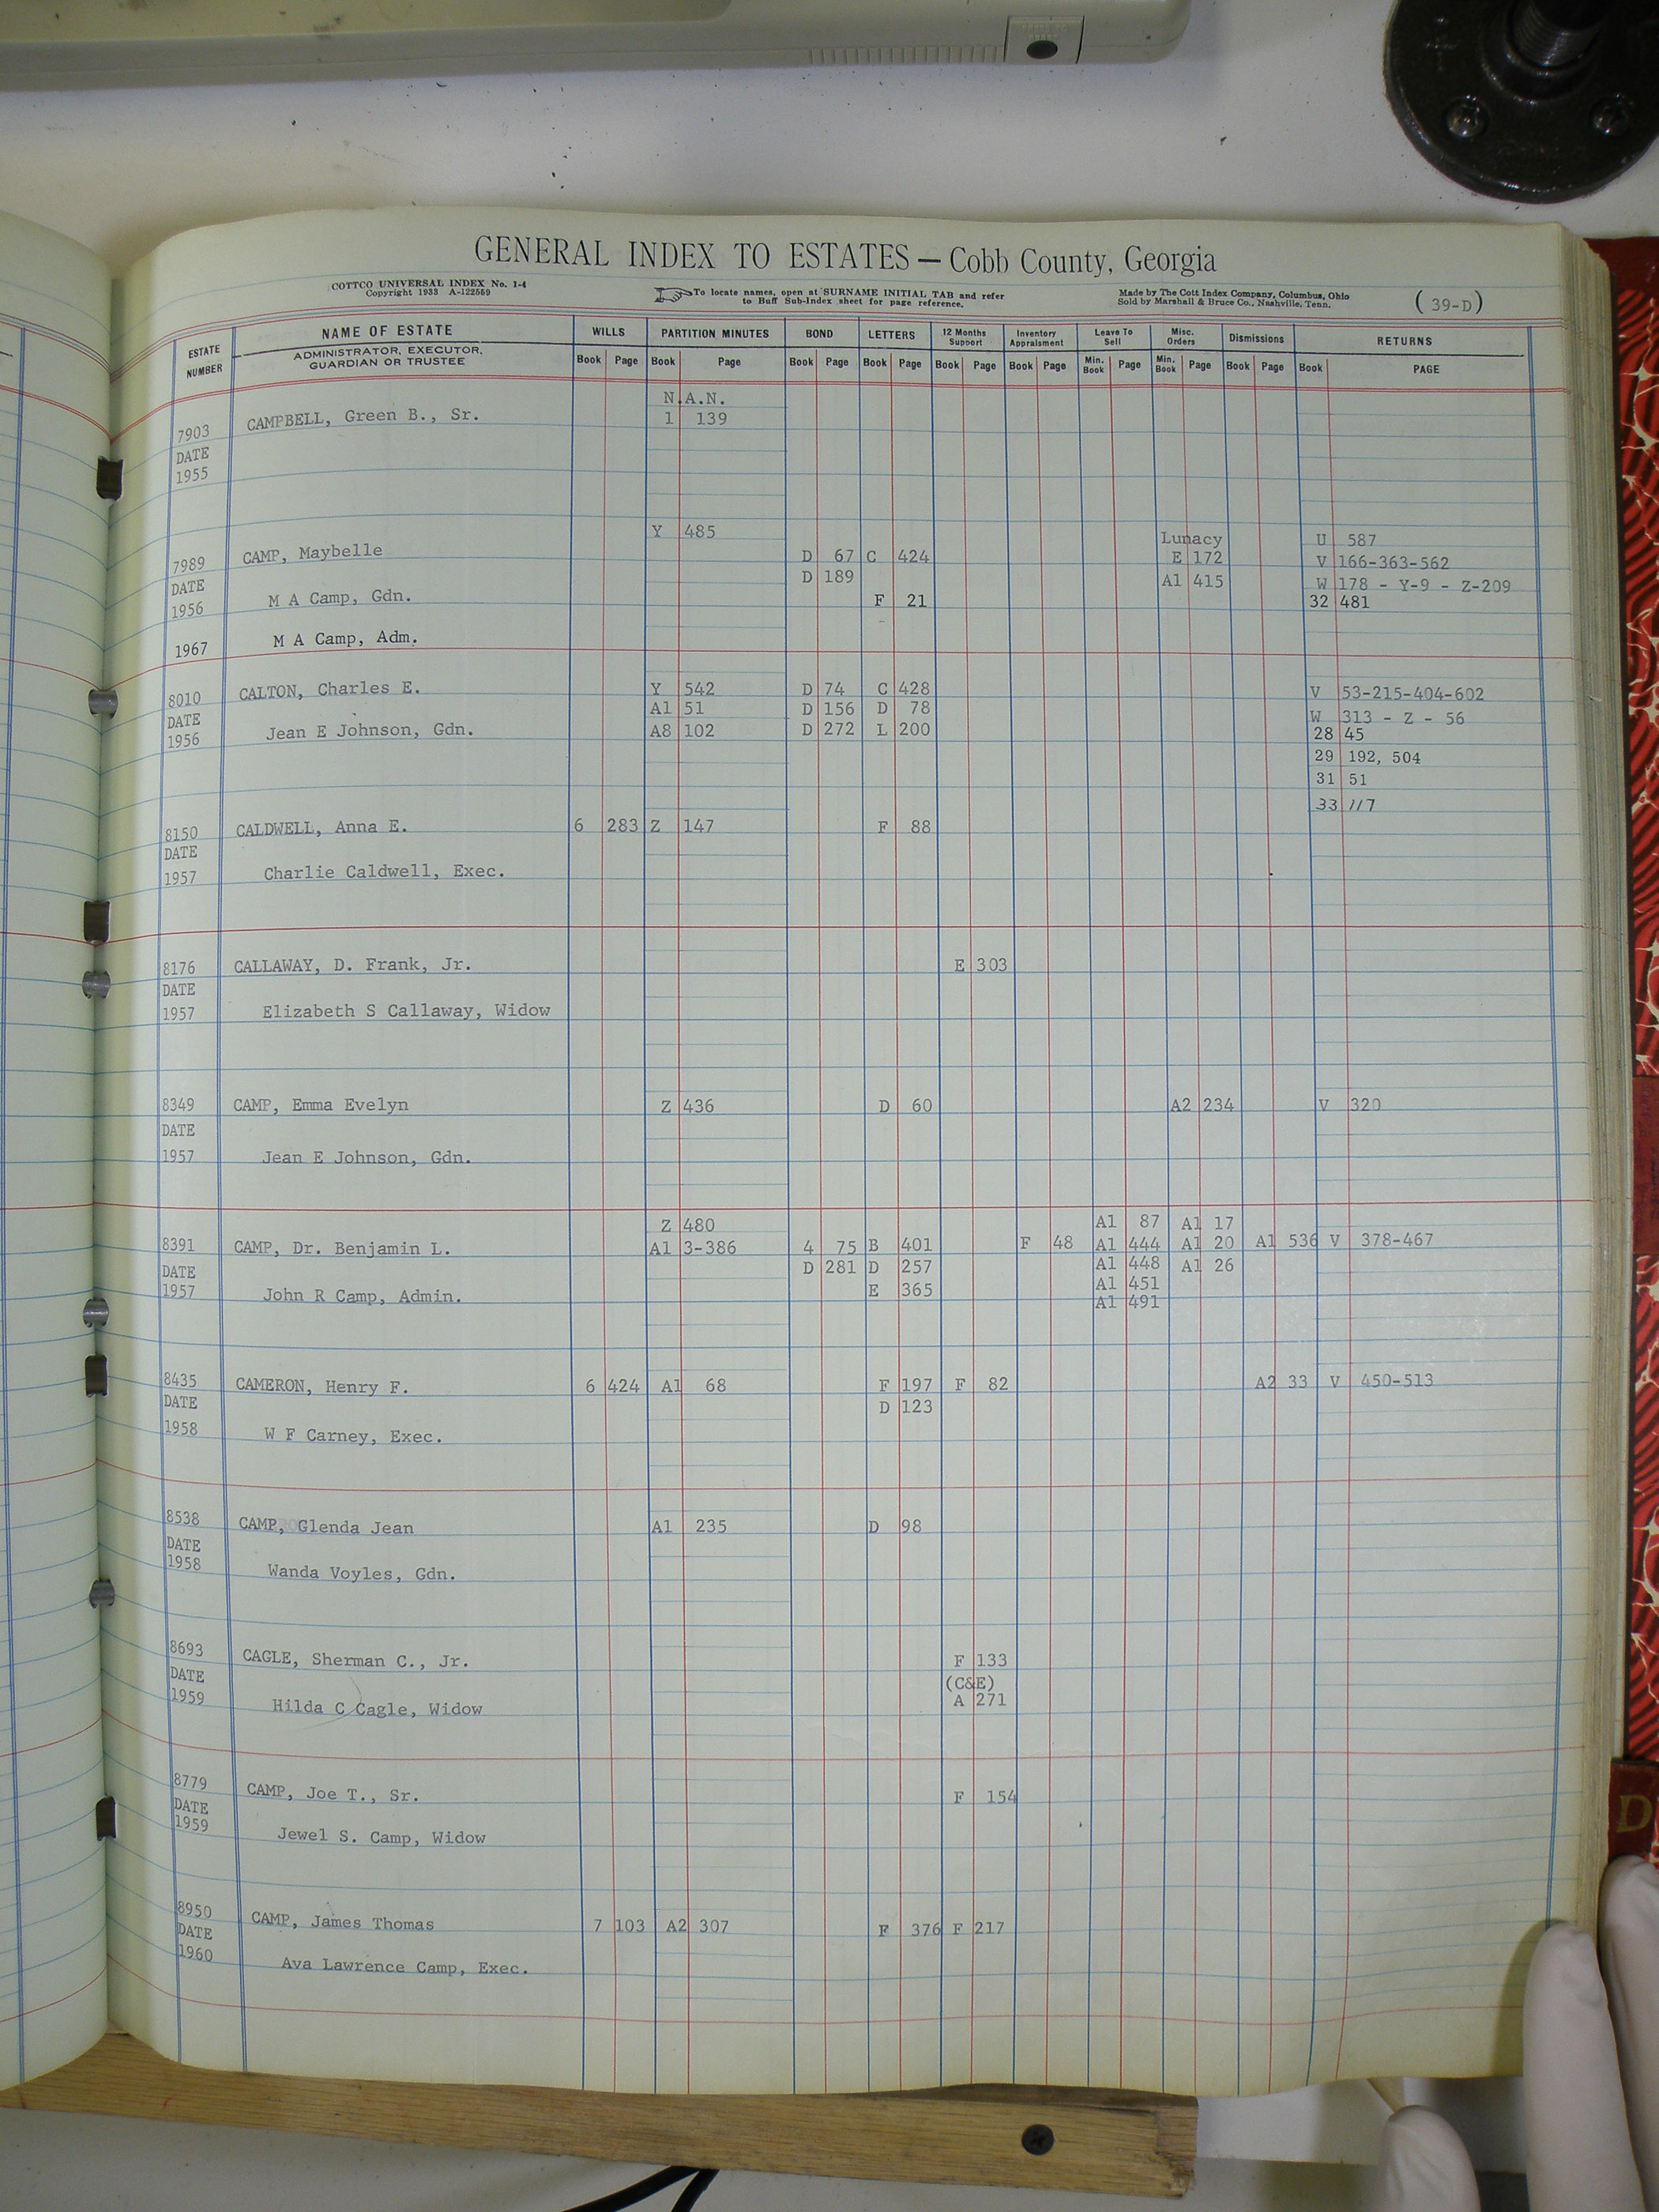 GENERAL INDEX TO ESTATES — Cobb County, Georgia
COTTCO UNIVERSAL INDEX No. 1-4
Copyright 1933 A-122559
To locate names, open at SURNAME INITIAL TAB and refer
to Buff Sub-Index sheet for page reference.
Made by The Cott Index Company, Columbus, Ohio
Sold by Marshall & Bruce Co., Nashville, Tenn.
(39-D)
ESTATE NUMBER NAME OF ESTATE WILLS PARTITION MINUTES BOND LETTERS 12 Months Support Inventory Appraisment Leave To Sell Misc. Orders Dismissions RETURNS
ADMINISTRATOR, EXECUTOR,
GUARDIAN OR TRUSTEE
Book Page Book Page Book Page Book Page Book Page Book Page Min. Book Page Min. Book Page Book Page Book PAGE
N.A.N.
7903 CAMPBELL, Green B., Sr. 1 139
DATE
1955
Y 485 Lunacy U 587
7989 CAMP, Maybelle D 67 C 424 E 172 V 166-363-562
DATE D 189 A1 415 W 178 - Y-9 - Z-209
1956 M A Camp, Gdn. F 21 32 481
1967 M A Camp, Adm.
8010 CALTON, Charles E. Y 542 D 74 C 428 V 53-215-404-602
DATE A1 51 D 156 D 78 W 313 - Z - 56
1956 Jean E Johnson, Gdn. A8 102 D 272 L 200 28 45
29 192, 504
31 51
33 117
8150 CALDWELL, Anna E. 6 283 Z 147 F 88
DATE
1957 Charlie Caldwell, Exec.
8176 CALLAWAY, D. Frank, Jr. E 303
DATE
1957 Elizabeth S Callaway, Widow
8349 CAMP, Emma Evelyn Z 436 D 60 A2 234 V 320
DATE
1957 Jean E Johnson, Gdn.
Z 480 A1 87 A1 17
8391 CAMP, Dr. Benjamin L. A1 3-386 4 75 B 401 F 48 A1 444 A1 20 A1 536 V 378-467
DATE D 281 D 257 A1 448 A1 26
1957 John R Camp, Admin. E 365 A1 451
A1 491
8435 CAMERON, Henry F. 6 424 A1 68 F 197 F 82 A2 33 V 450-513
DATE D 123
1958 W F Carney, Exec.
8538 CAMP, Glenda Jean A1 235 D 98
DATE
1958 Wanda Voyles, Gdn.
8693 CAGLE, Sherman C., Jr. F 133
DATE (C&E)
1959 Hilda C Cagle, Widow A 271
8779 CAMP, Joe T., Sr. F 154
DATE
1959 Jewel S. Camp, Widow
8950 CAMP, James Thomas 7 103 A2 307 F 376 F 217
DATE
1960 Ava Lawrence Camp, Exec.
D